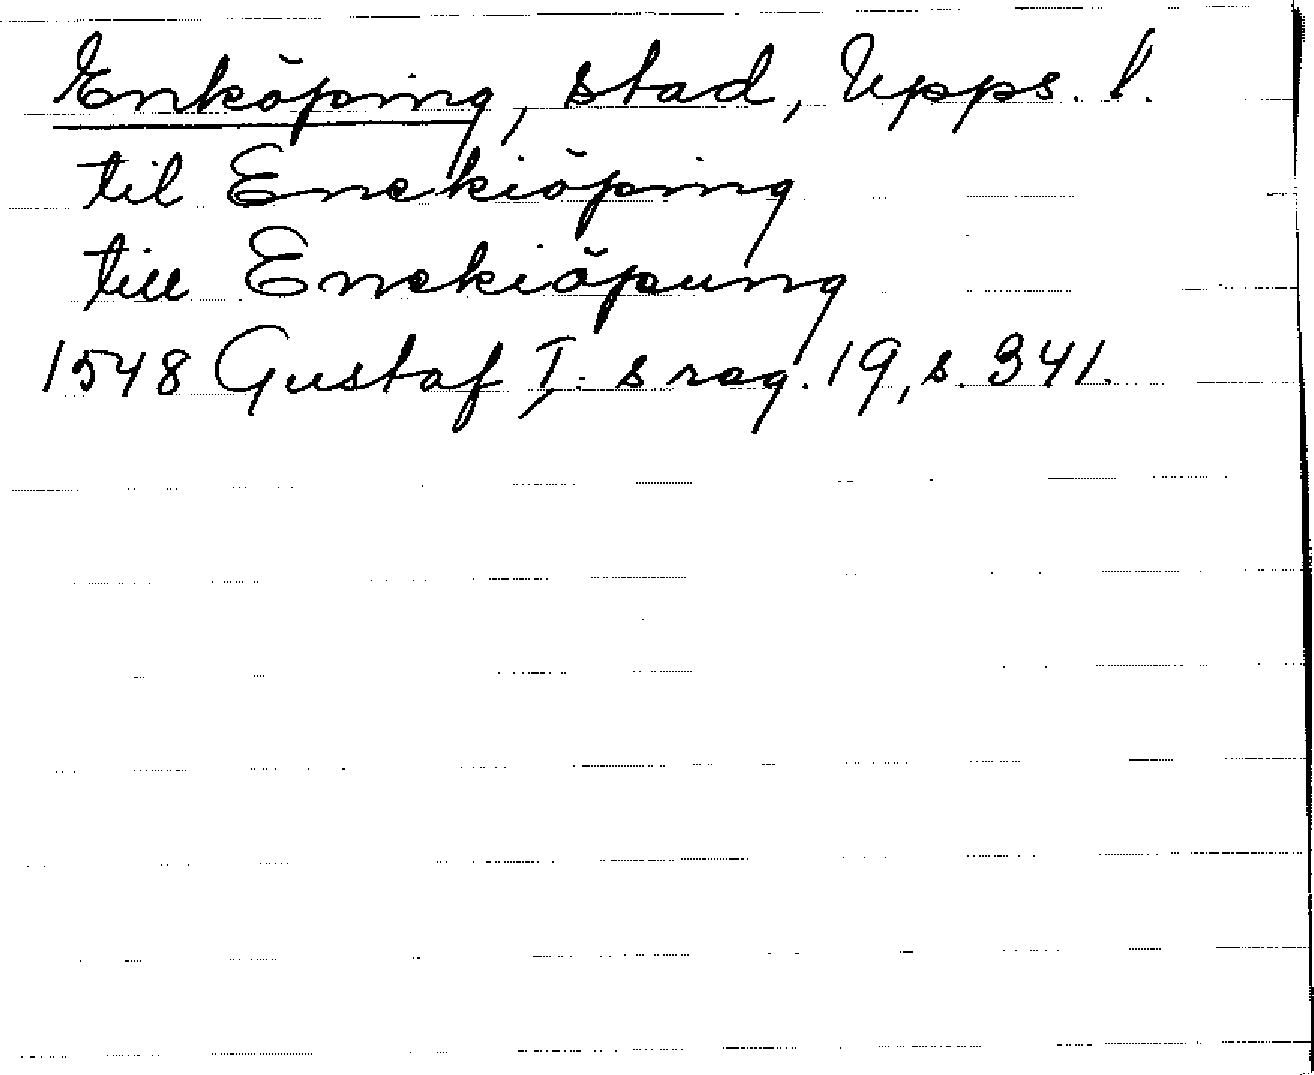 Enköping, stad, Upps. l.
til Enekiöping
till Enekiöpung
1548 Gustaf I: s reg. 19, s. 341.